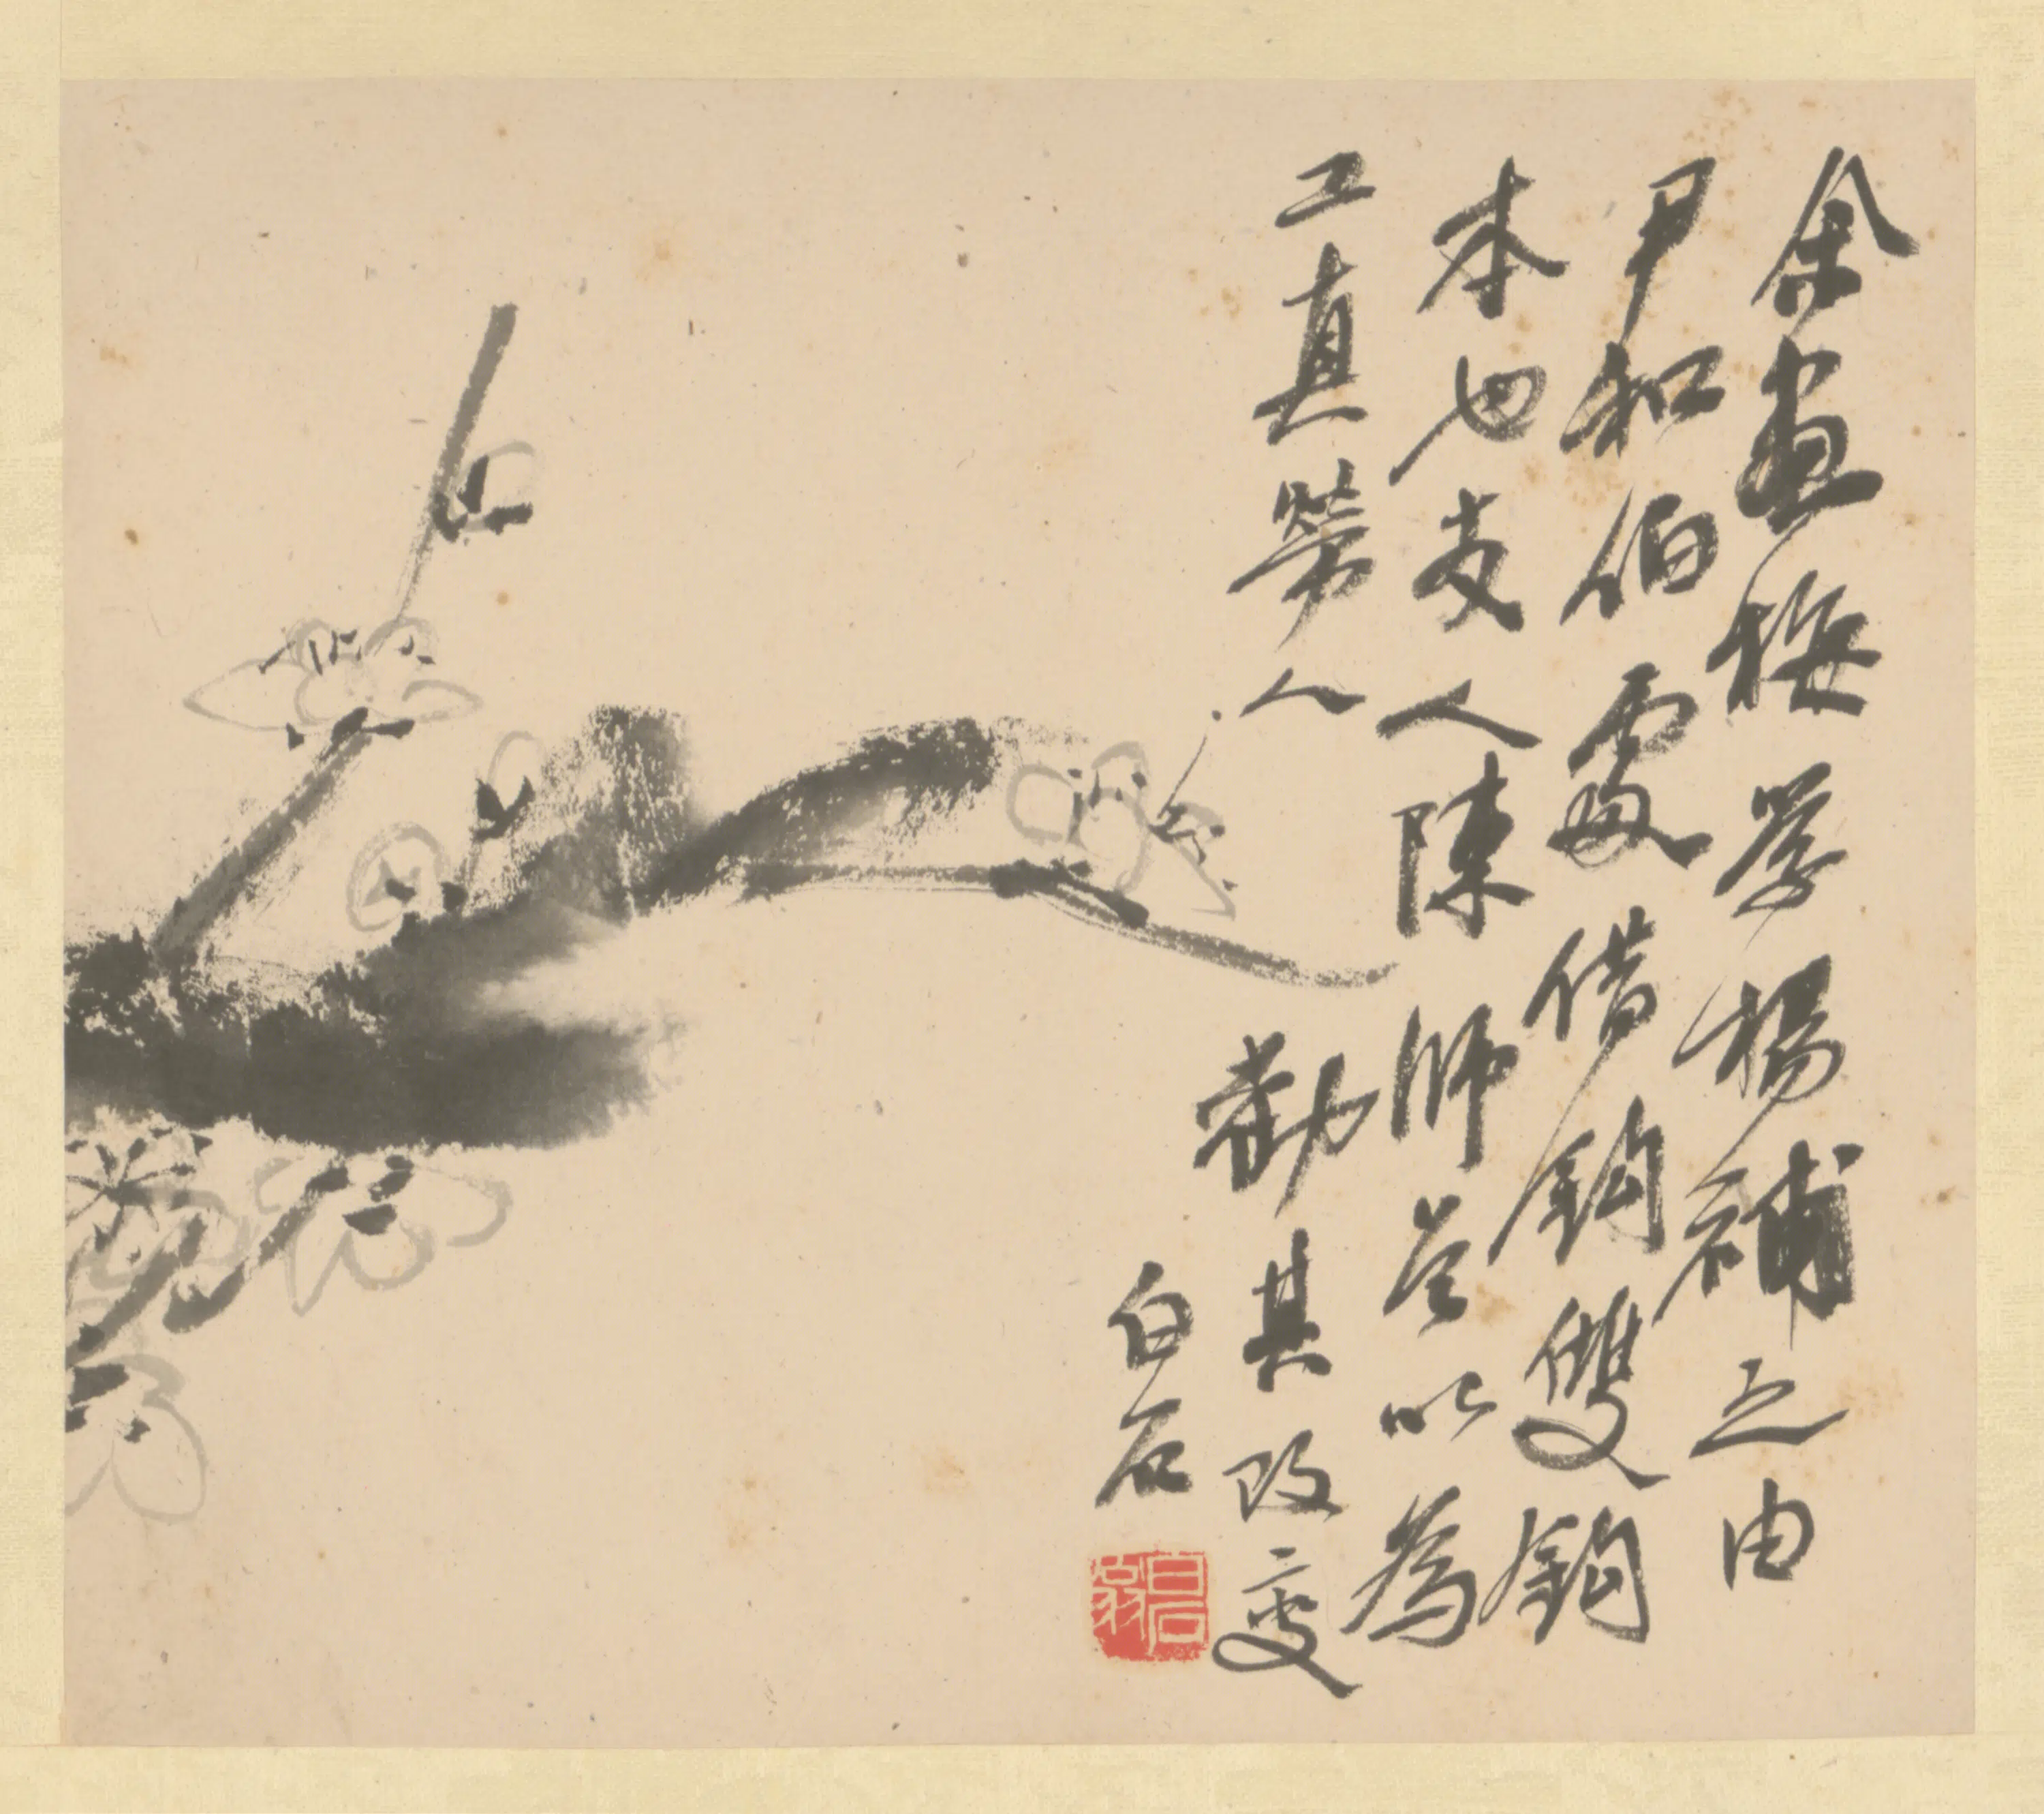 余畫梅學楊補之由
尹和伯處借鉤雙鉤
本也友人陳師曾以為
工真勞人
勸其改變
白石
白石翁